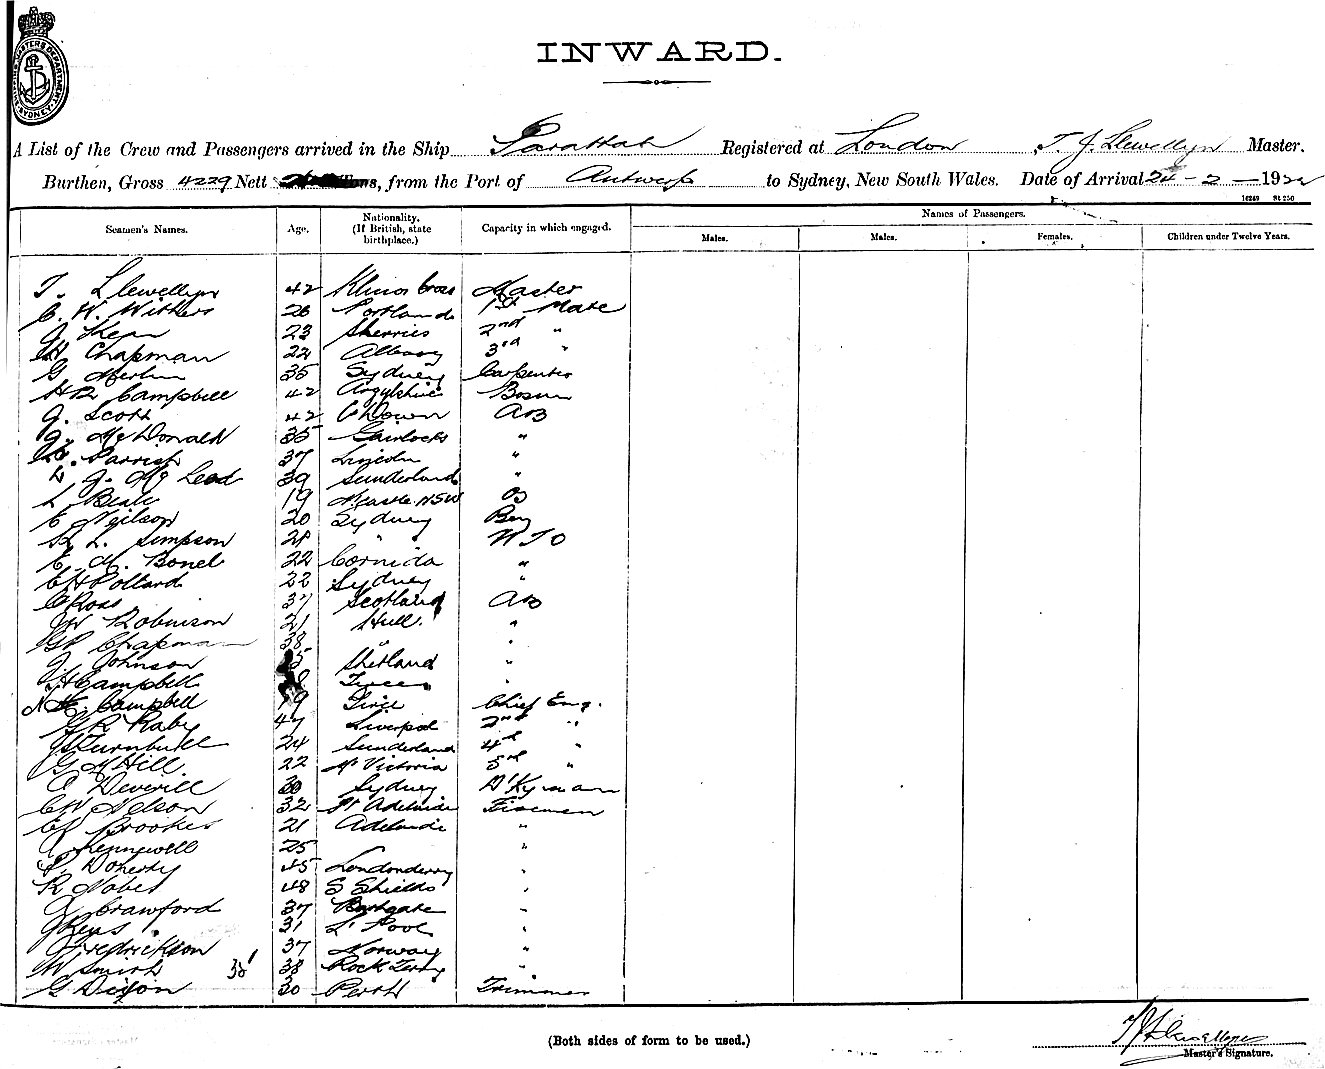 INWARD.
A List of the Crew and Passengers arrived in the Ship Parattah Registered at London, T. J. Llewellyn Master.
Burthen, Gross 4229 Nett Tons, from the Port of Antwerp to Sydney, New South Wales. Date of Arrival 24-2-1922
16249 St 250
Names of Passengers.
Seamen's Names. Age. Nationality. (If British, state birthplace.) Capacity in which engaged. Males. Males. Females. Children under Twelve Years.
T. Llewellyn 42 Cross Master
C. W. Withers 26 Portland 1st Mate
J. Kean 23 Skerries 2nd "
W Chapman 22 Albany 3rd "
G 35 Sydney Carpenter
H B Campbell 42 Argylshire Bosun
J. Scott 42 C Down AB
J. McDonald 35 Gairlock "
Parrish 37 Lincoln "
J. McLeod 39 Sunderland "
L Beale 19 Ncastle NSW OS
E Neilson 20 Sydney Boy
R L. Simpson 21 " " W T O
E. M. Bonel 22 "
C H Pollard 22 Sydney "
C Ross 37 Scotland AB
J W Robinson 21 Hull. "
G P Chapman 38 " "
J Johnson Shetland "
J H Campbell Tiree "
N Campbell 19 Tiree Chief Eng.
G R Raby 47 Liverpool 2nd "
J S Turnbull 24 Sunderland 4th "
G N Hill 22 Victoria 5th "
A Deverill 30 Sydney D'Kyman
C W Nelson 32 Pt Adelaide Firemen
C J Brookes 21 Adelaide "
J Kennewell 25 "
P. Doherty 45 Londonderry "
R Nobes 48 S Shields "
J Crawford 37 Bathgate "
J Keys 31 L'Pool "
J Fredrickson 37 Norway "
W Smith 38 Rock Ferry "
G Dixon 30 Perth Trimmer
(Both sides of form to be used.)
T J Llewellyn
Master's Signature.